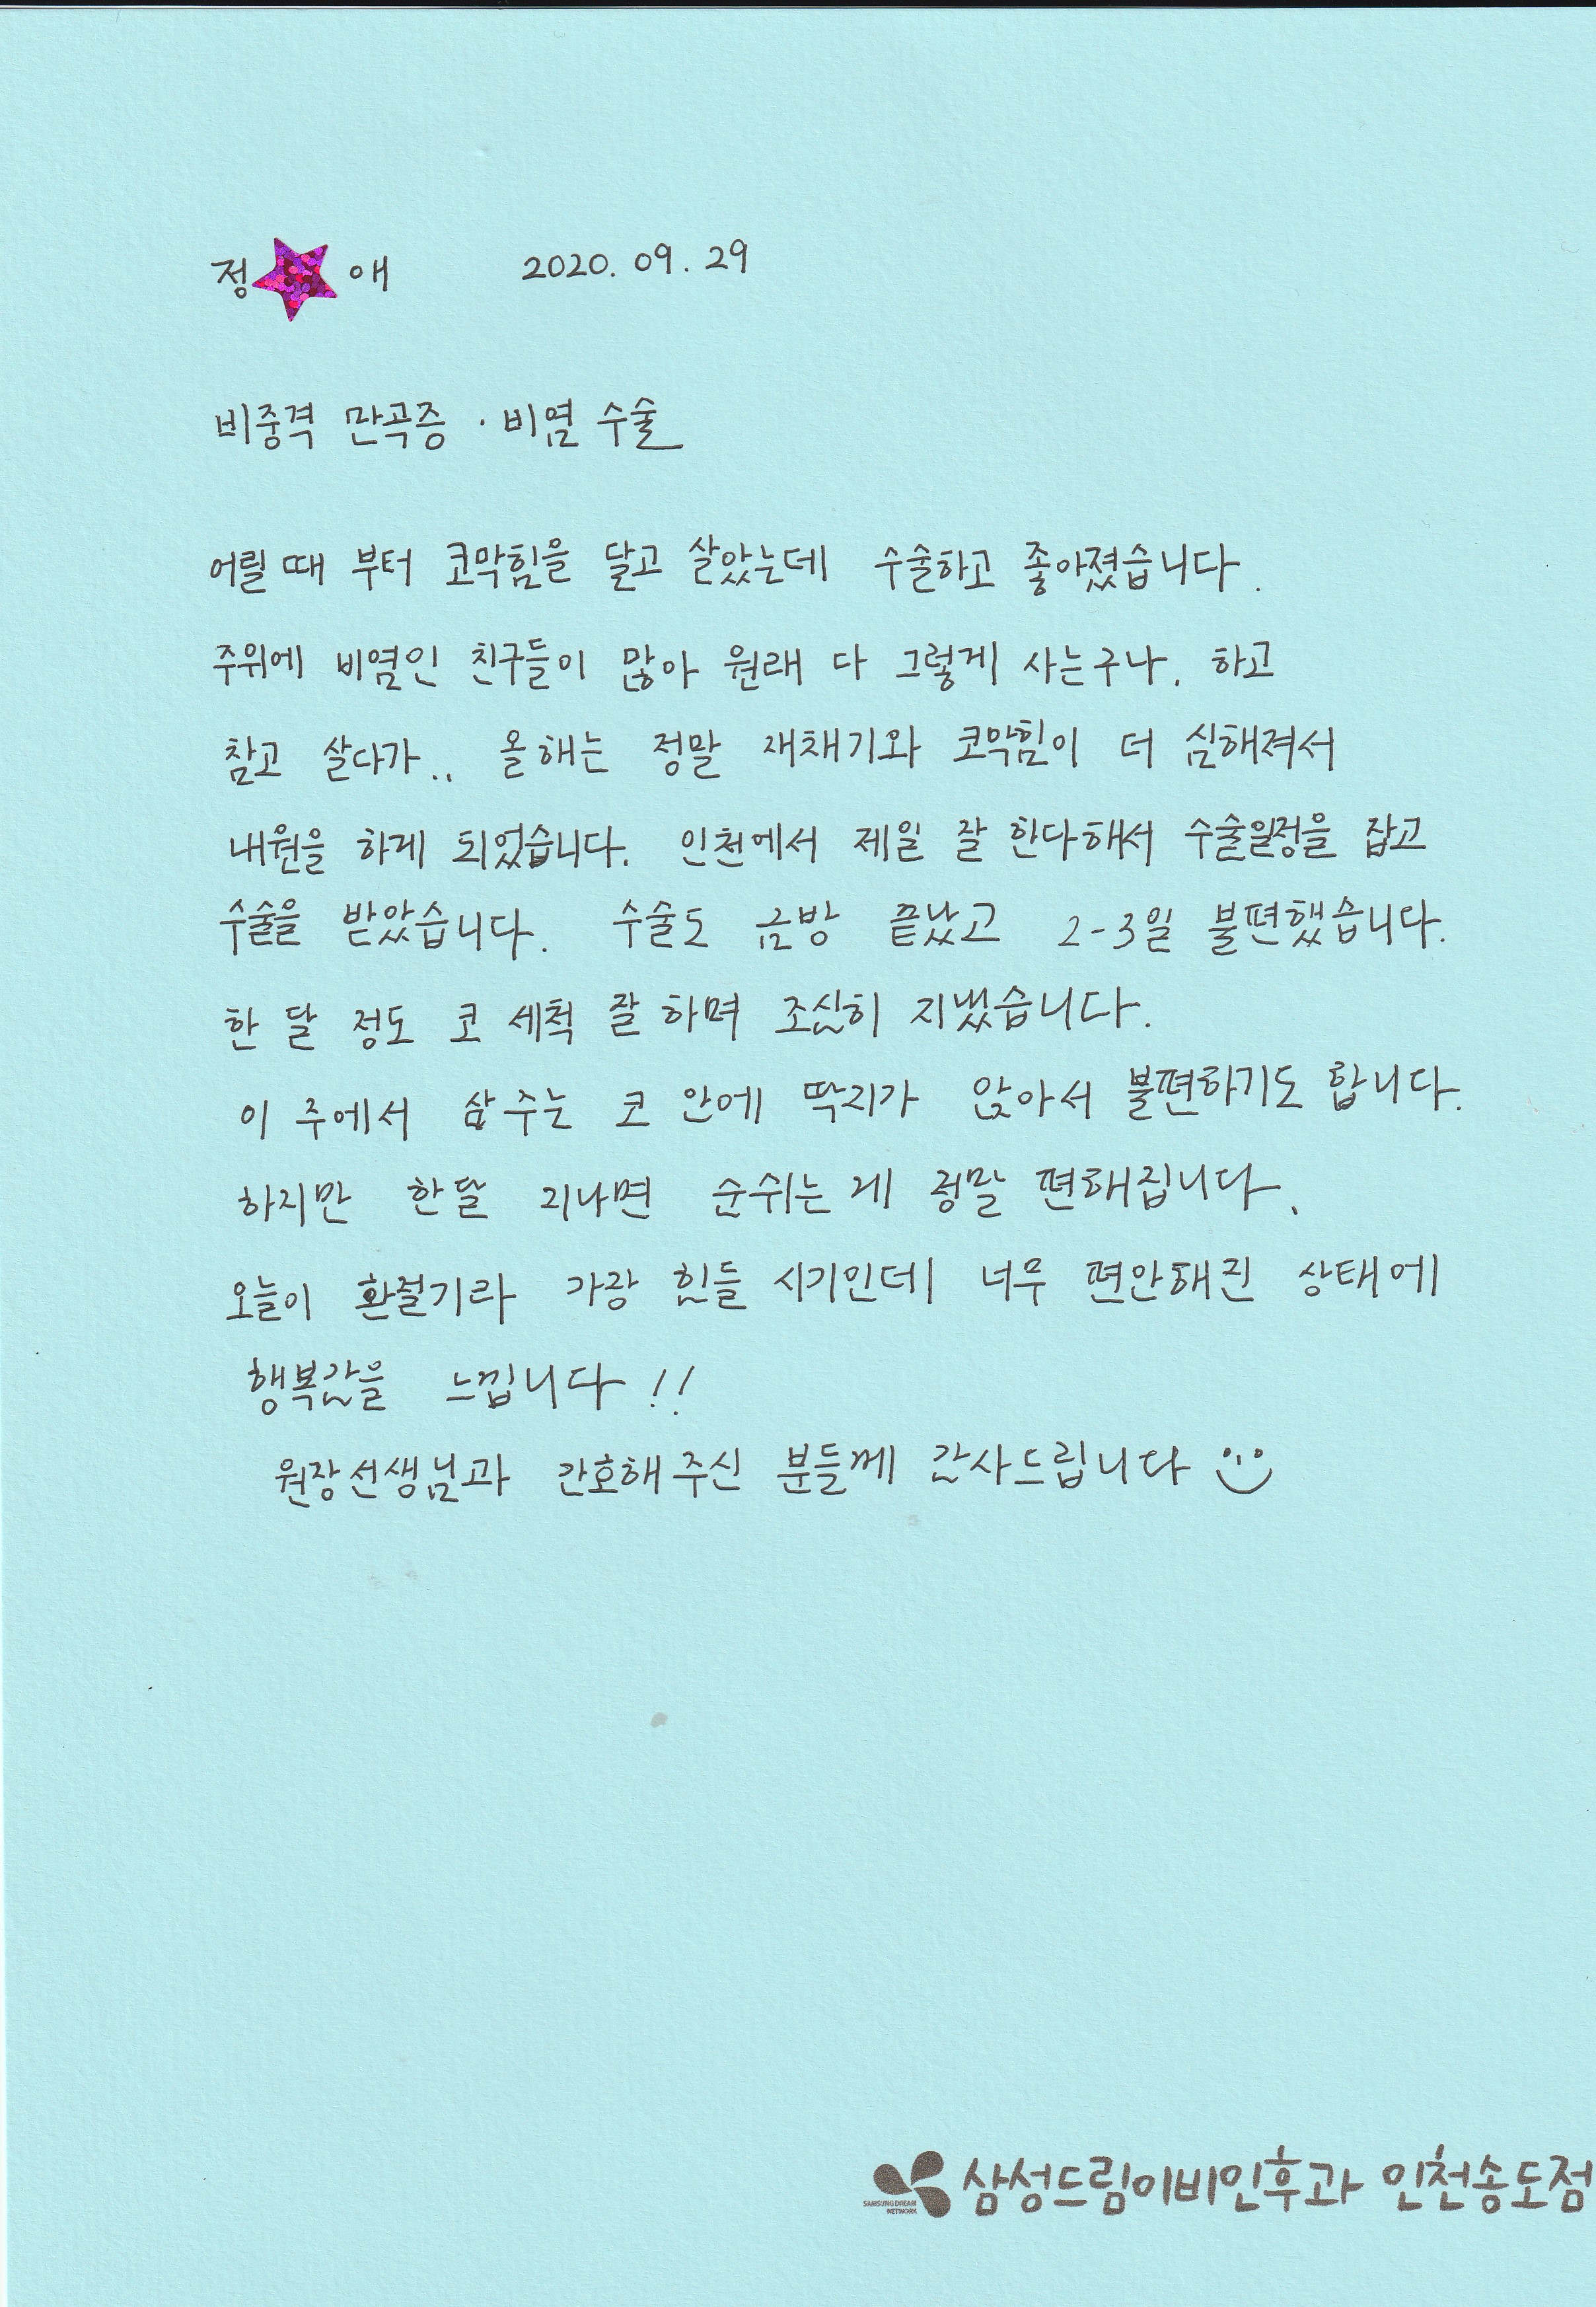 정 애 2020. 09. 29
비중격 만곡증 · 비염 수술
어릴 때 부터 코막힘을 달고 살았는데 수술하고 좋아졌습니다.
주위에 비염인 친구들이 많아 원래 다 그렇게 사는구나, 하고
참고 살다가.. 올해는 정말 재채기와 코막힘이 더 심해져서
내원을 하게 되었습니다. 인천에서 제일 잘 한다해서 수술일정을 잡고
수술을 받았습니다. 수술도 금방 끝났고 2-3일 불편했습니다.
한 달 정도 코 세척 잘 하며 조심히 지냈습니다.
이 주에서 삼 주는 코 안에 딱지가 앉아서 불편하기도 합니다.
하지만 한달 지나면 숨쉬는 게 정말 편해집니다.
오늘이 환절기라 가장 힘들 시기인데 너무 편안해진 상태에
행복감을 느낍니다!!
원장선생님과 간호해 주신 분들께 감사드립니다
SAMSUNG DREAM NETWORK 삼성드림이비인후과 인천송도점